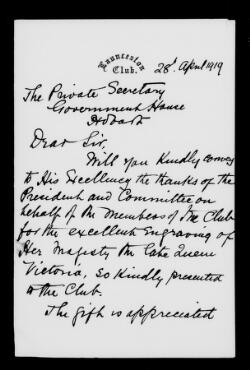 Launceston
Club.
28th April 1919
The Private Secretary
Government House
Hobart
Dear Sir,
Will you kindly convey
to His Excellency the thanks of the
President and Committee on
behalf of the members of the Club
for the excellent Engraving of
Her Majesty the late Queen
Victoria, so kindly presented
to the Club.
The gift is appreciated